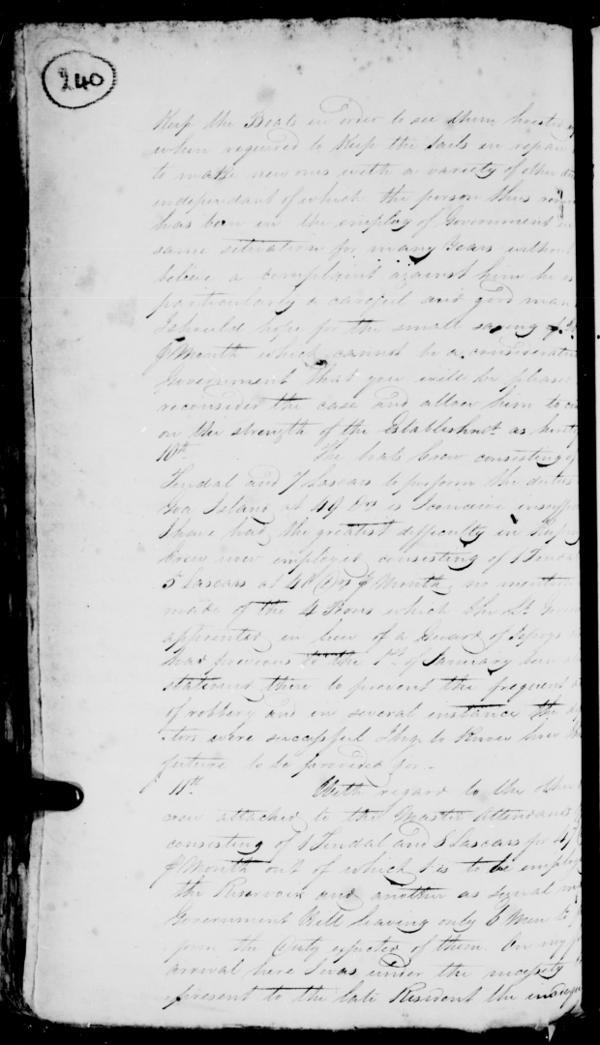 240
Keep the Boats in order to see them hoisted
when required to Keep the sails in repair
to make new ones with a variety of other
independant of which the person thus
has been in the employ of Government
same situation for many Years without
a complaint against him he is
particularly a careful and good man
I should hope for the small saving of
p Month which cannot be a consideration
Government that you will be pleased
reconsider the case and allow him to
on the strength of the Establishmt. as
10th The boats Crew consisting of
Tindal and 7 Lascars to perform the duties
Goa Island at 49 is I conceive
I have had the greatest difficulty in keeping
Crew now employed consisting of 1 Tindal
5 Lascars at 40 p Month, no mention
made of the 4 Peons which the Lt.
appointed in lieu of a Guard of Sepoys
had previous to the 1st. of January been
stationed there to prevent the frequent
of robbery and in several instances the
were successful
future to be provided for.
11th. With regard to the other
crew attached to the Master Attendant
consisting of 1 Tindal and 8 Lascars for 47
p Month out of which 1 is to be
the Reservoir and another as
Government Bell leaving only 6 Men to
the Duty expected of them. On my
arrival here I was under the necessity
represent to the late Resident the